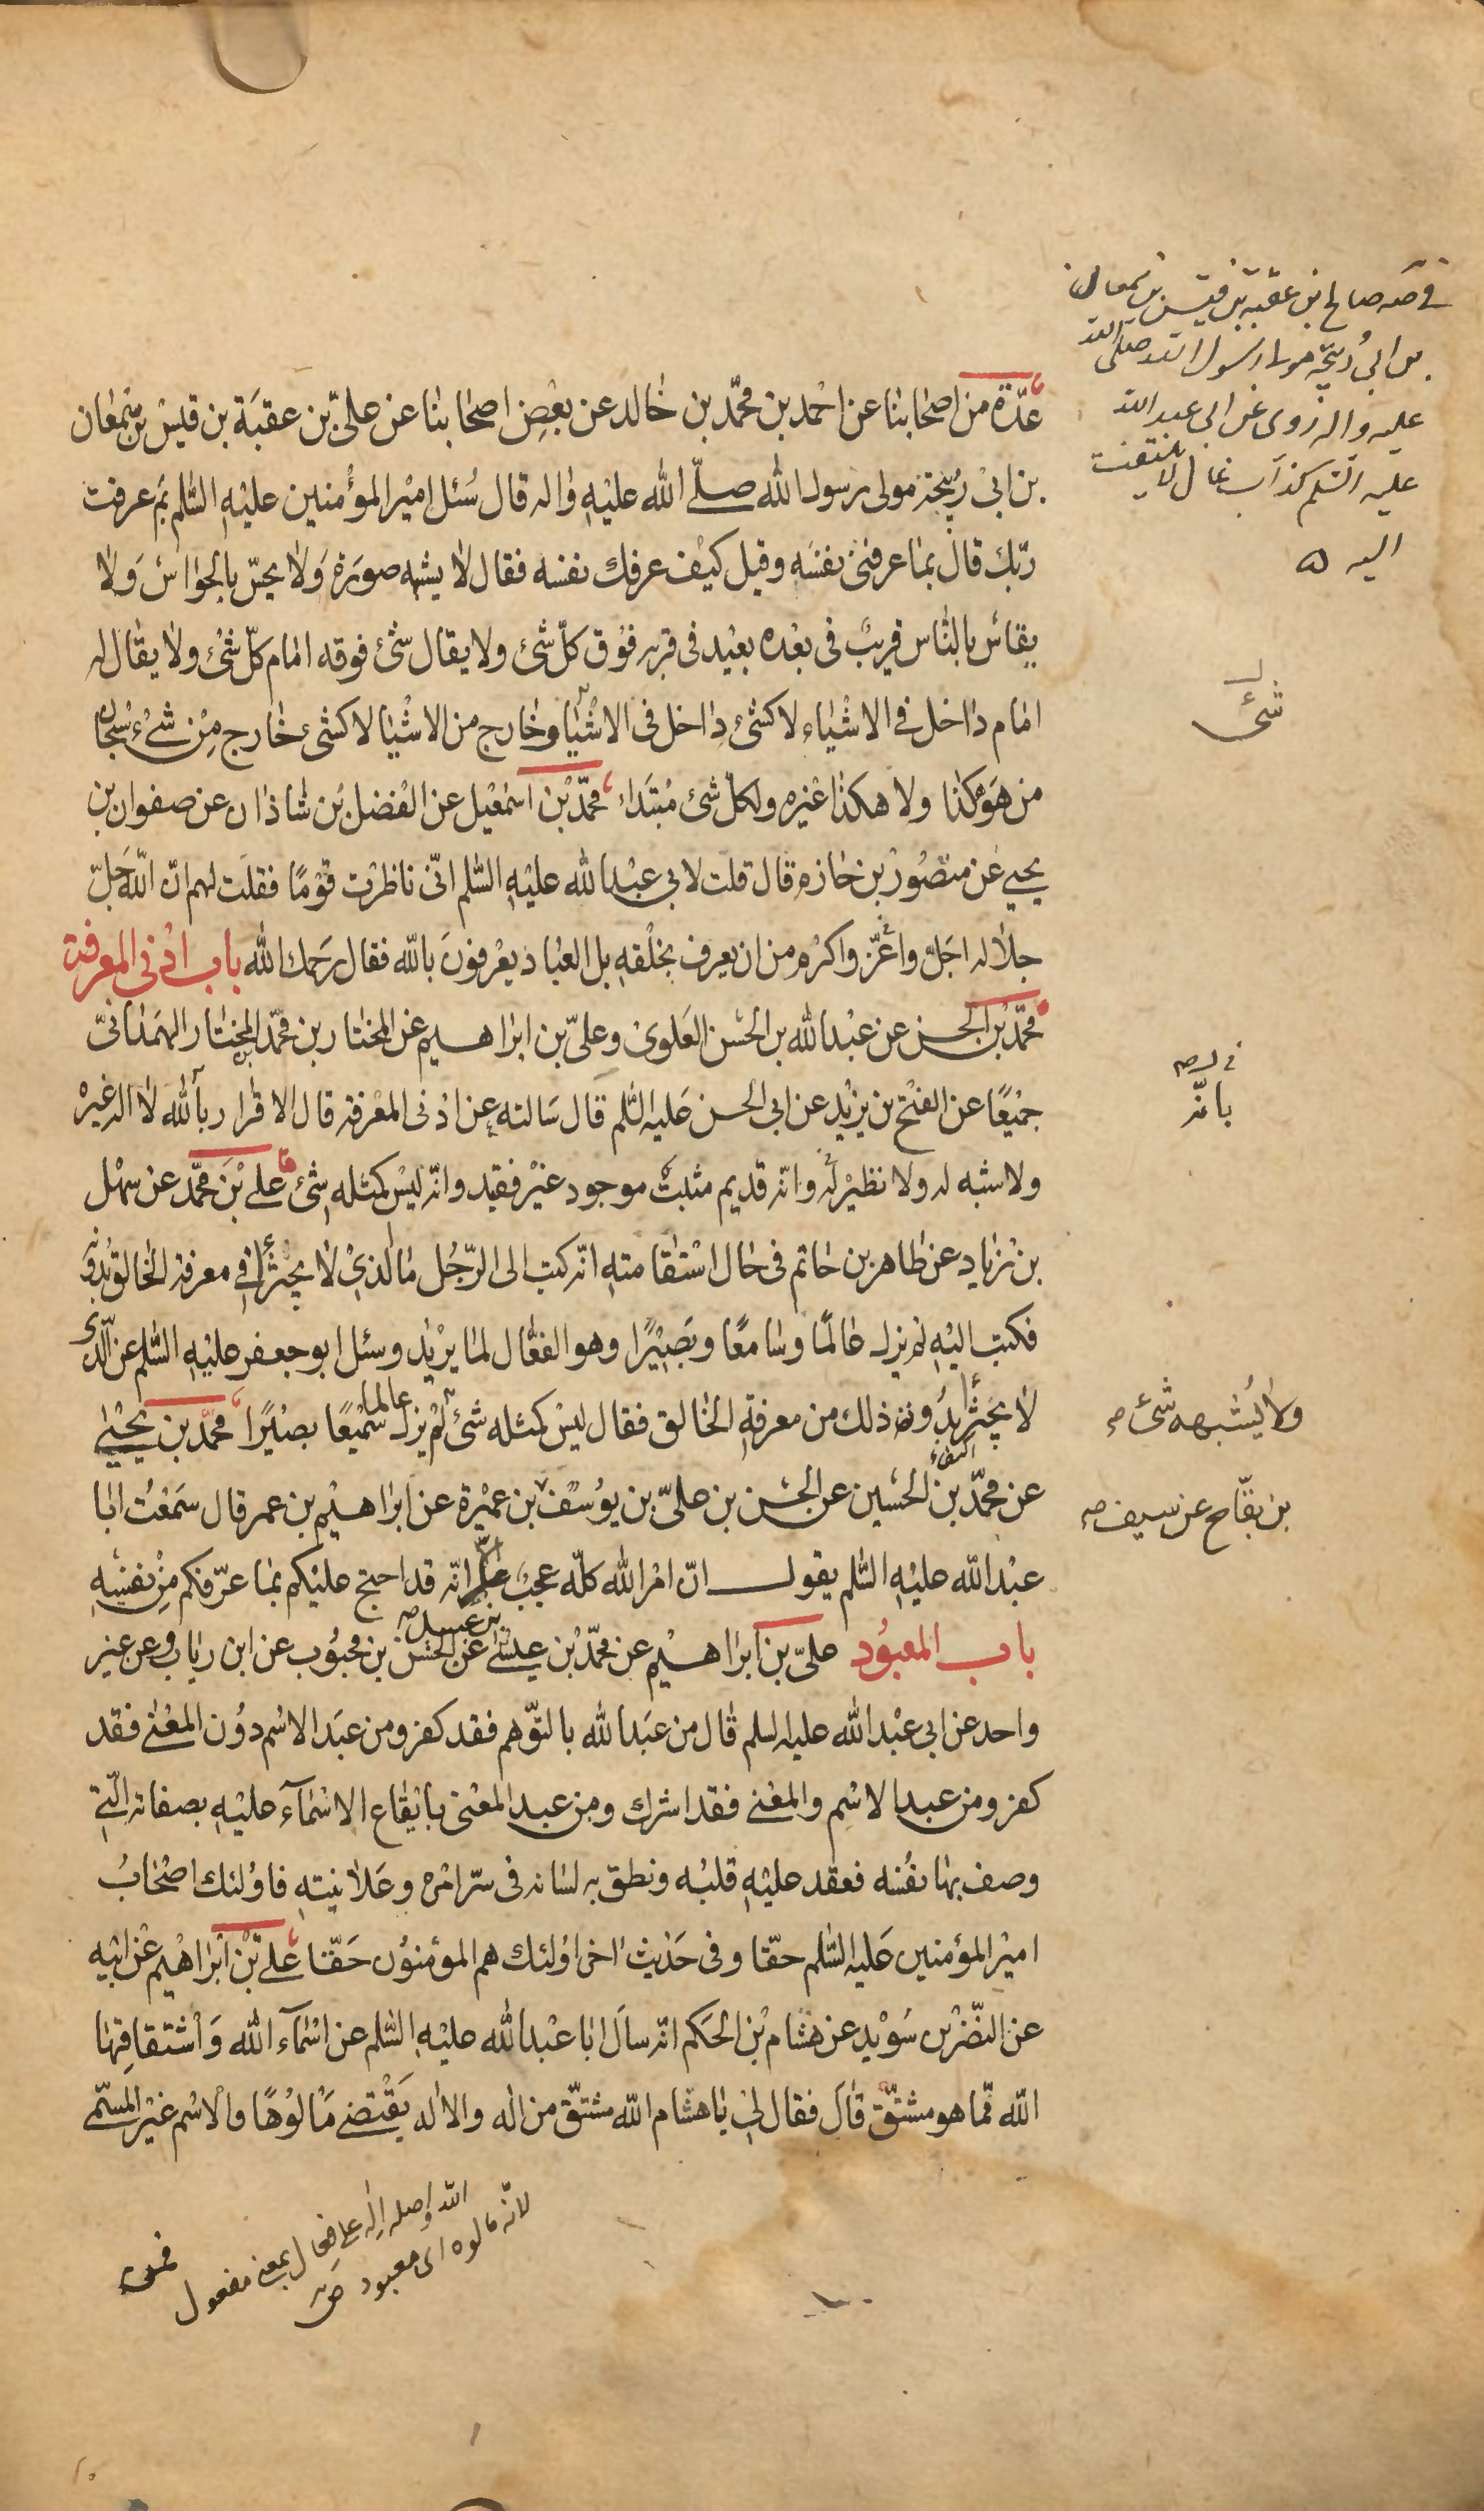 في صه صالح بن عقبة بن قيس بن سمعان
بن ابي ربيحة مولى رسول الله صلى الله
عليه واله روى عن ابي عبد الله
عليه السلم كذاب غال لا يلتفت
اليه
عدّة من اصحابنا عن احمد بن محمّد بن خالد عن بعض اصحابنا عن علىّ بن عقبة بن قيس بن سمعان
بن ابى ربيحة مولى رسول الله صلّى الله عليه واله قال سئل امير المؤمنين عليه السّلم بم عرفت
ربّك قال بما عرفنى نفسه وقيل كيف عرفك نفسه فقال لا يشبهه صورة ولا يحسّ بالحواس ولا
يقاس بالناس قريب فى بعده بعيد فى قربه فوق كلّ شئ ولا يقال شئ فوقه امام كلّ شئ ولا يقال له
شئ
امام داخل فى الاشياء لا كشئ داخل فى الاشيا وخارج من الاشيا لا كشئ خارج من شئ سبحان
من هو هكذا ولا هكذا غيره ولكلّ شئ مبتداء محمّد بن اسمعيل عن الفضل بن شاذان عن صفوان بن
يحيى عن منصور بن حازم قال قلت لابي عبد الله عليه السّلم انّى ناظرت قومًا فقلت لهم انّ الله جلّ
جلاله اجلّ واعزّ واكرم من ان يعرف بخلقه بل العباد يعرفون بالله فقال رحمك الله باب ادنى المعرفة
محمّد بن الحسن عن عبد الله بن الحسن العلوى وعلىّ بن ابراهيم عن المختار بن محمّد المختار الهمدانىّ
بانّه
جميعًا عن الفتح بن يزيد عن ابى الحسن عليه السّلم قال سالته عن ادنى المعرفة قال الاقرار بالله لا اله غيره
ولا شبه له ولا نظير له وانّه قديم مثبت موجود غير فقيد وانّه ليس كمثله شئ علىّ بن محمّد عن سهل
بن زياد عن طاهر بن حاتم فى حال استقامته انّه كتب الى الرّجل ما الّذى لا يجتزأ فى معرفة الخالق بدونه
فكتب اليه لم يزل عالمًا وسامعًا وبصيرًا وهو الفعّال لما يريد وسئل ابو جعفر عليه السّلم عن الّذى
لا يجتزأ بدون ذلك من معرفة الخالق فقال ليس كمثله شئ لم يزل عالما سميعًا بصيرًا محمّد بن يحيى
ولا يُشبهه شئ صح
عن محمّد بن الحسين عن الحسن بن علىّ بن يوسف بن عميرة عن ابراهيم بن عمر قال سمعت ابا
بن بقّاح عن سيف صح
عبد الله عليه السّلم يقول انّ امر الله كلّه عجب الّا انّه قد احتج عليكم بما عرّفكم من نفسه
باب المعبود علىّ بن ابراهيم عن محمّد بن عيسى بن عبيد صح عن الحسن بن محبوب عن ابن رياب وعن غير
واحد عن ابى عبد الله عليه السلم قال من عبد الله بالتوّهم فقد كفر ومن عبد الاسم دون المعنى فقد
كفر ومن عبد الاسم والمعنى فقد اشرك ومن عبد المعنى بايقاع الاسمآء عليه بصفاته الّتى
وصف بها نفسه فعقد عليه قلبه ونطق به لسانه فى سرّ امره وعلانيته فاولئك اصحاب
امير المؤمنين عليه السّلم حقّا وفى حديث اخر اولئك هم المؤمنون حقّا علىّ بن ابراهيم عن ابيه
عن النّضر بن سويد عن هشام بن الحكم انّه سأل ابا عبد الله عليه السّلم عن اسمآء الله واشتقاقها
الله ممّا هو مشتقّ قال فقال لى يا هشام الله مشتقّ من اله والاله يقتضى مالوهًا والاسم غير المسمّى
الله اصله اله على فعال بمعنى مفعول
لانّه مالوه اى معبود
فمن